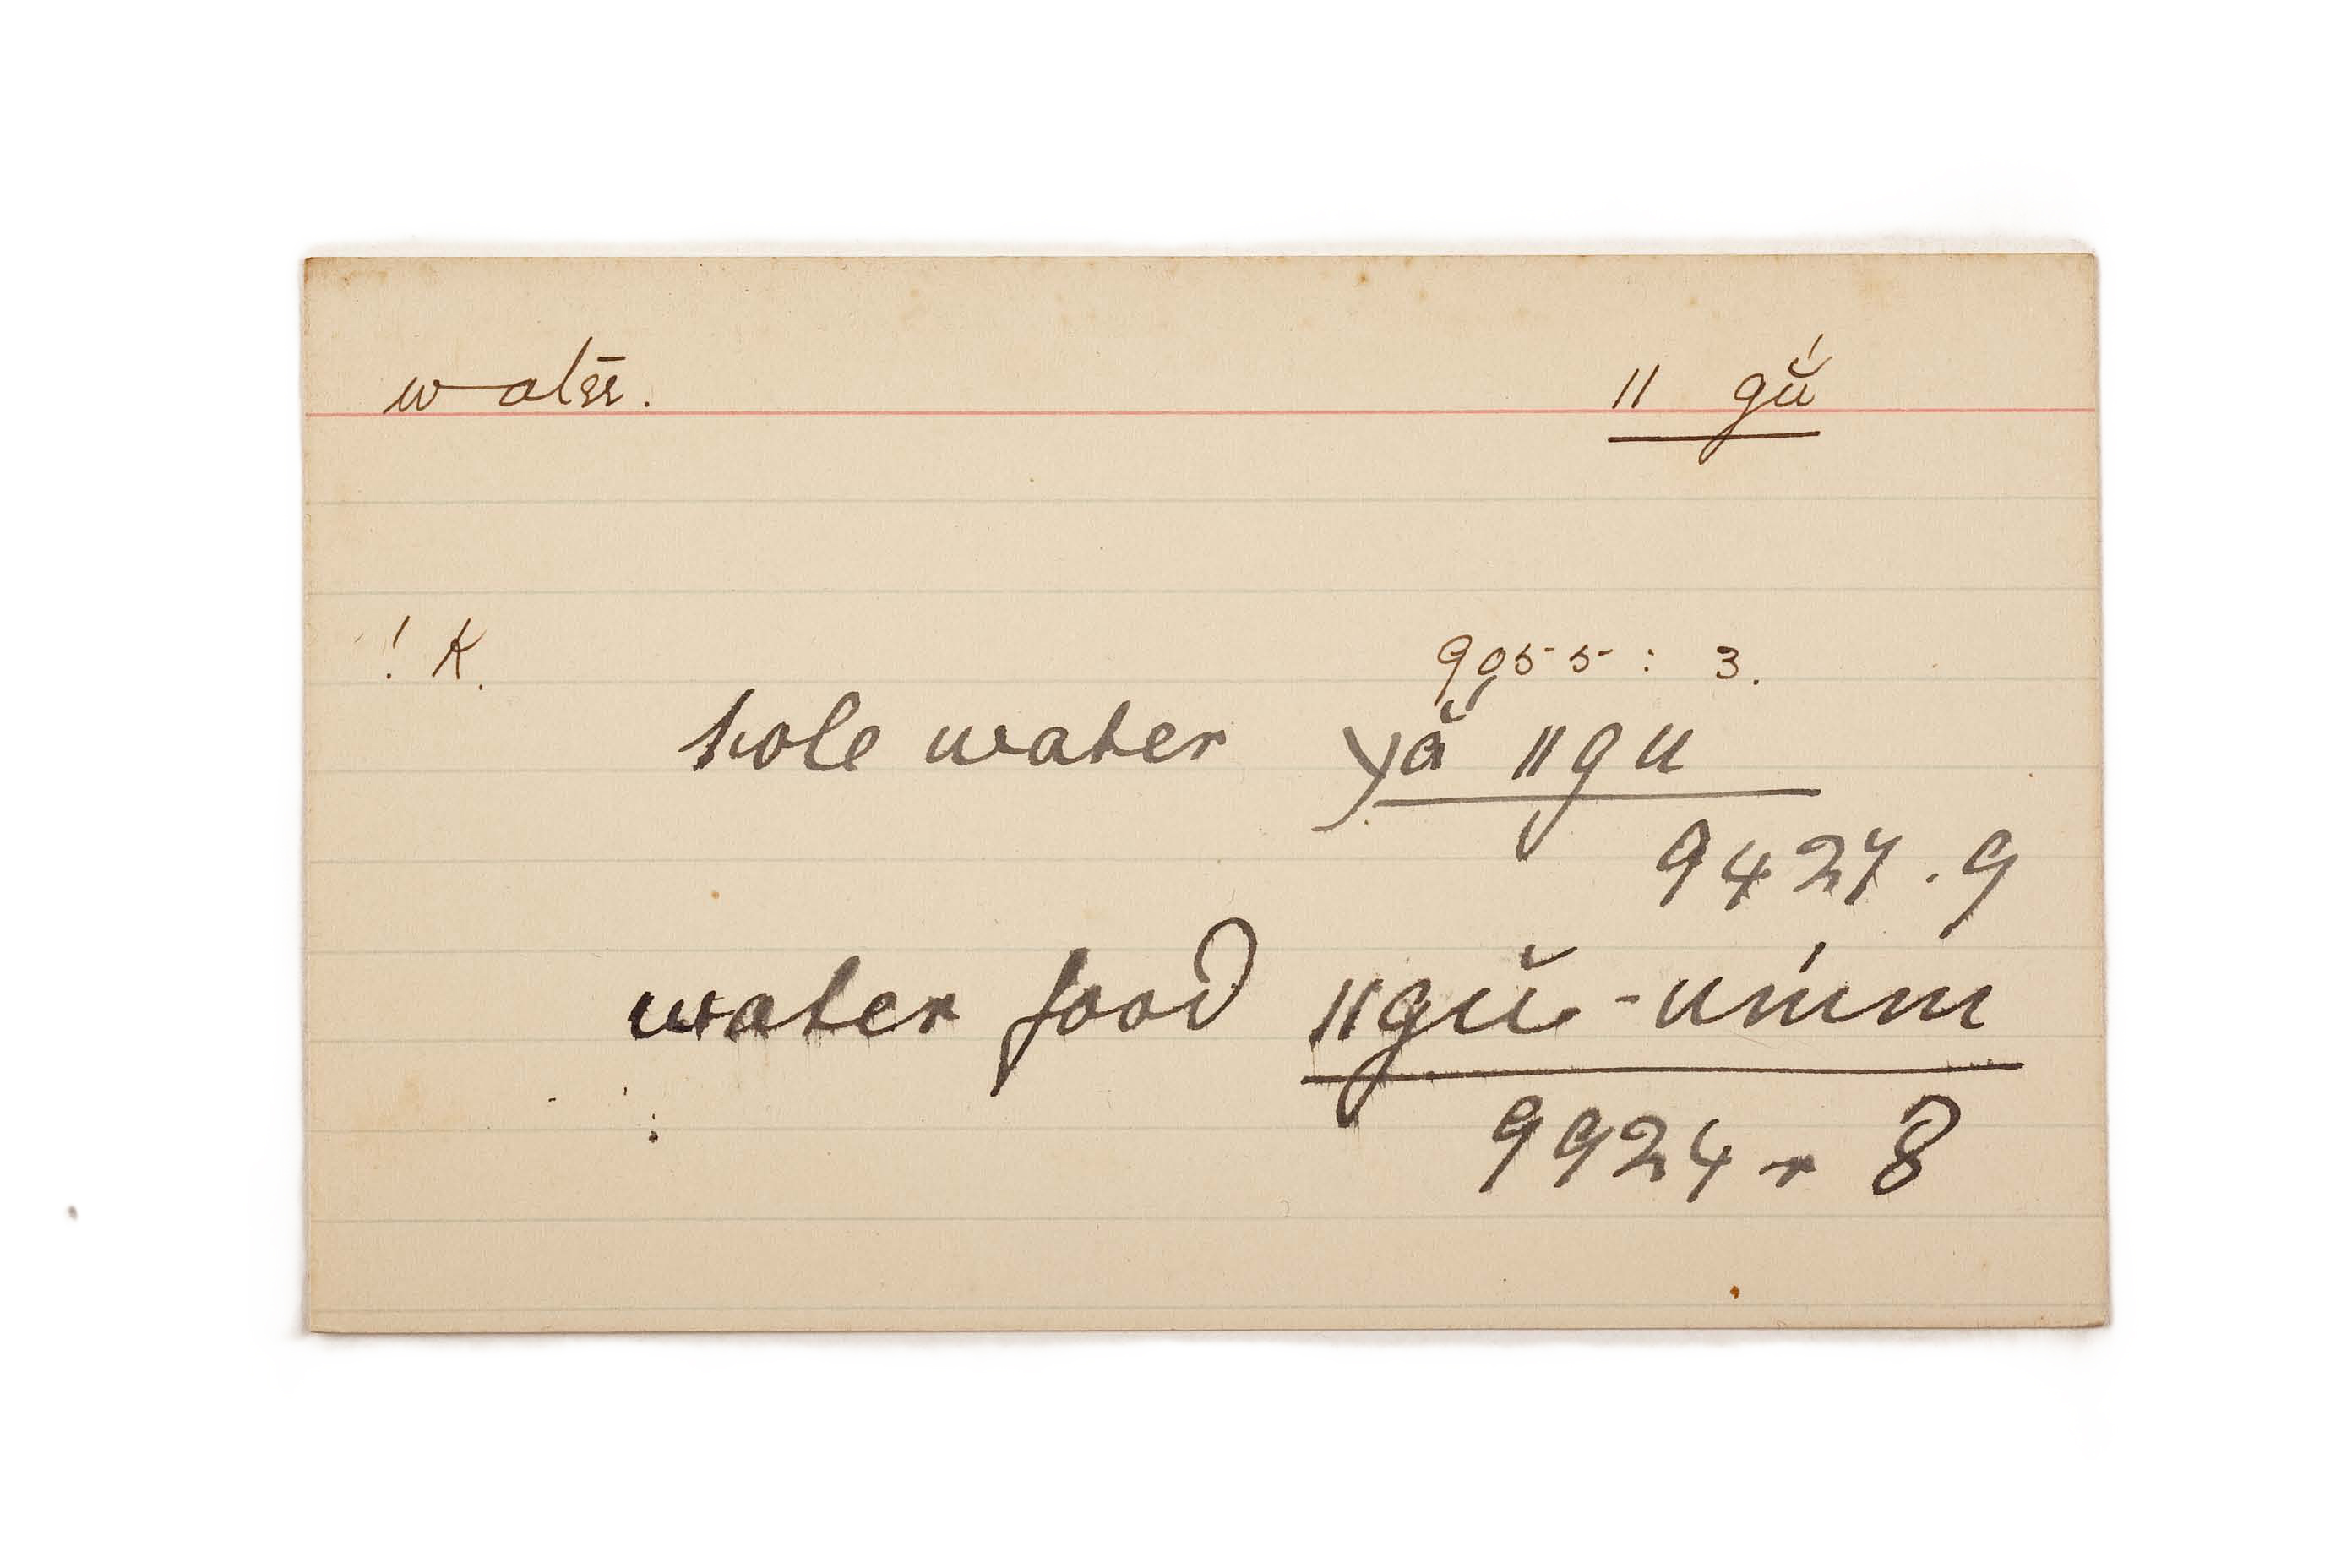 water. ǁ gŭ́
! K. 9055 : 3.
hole water yắ ǁgu
9427.9
water food ǁgŭ-umm
9924 r 8